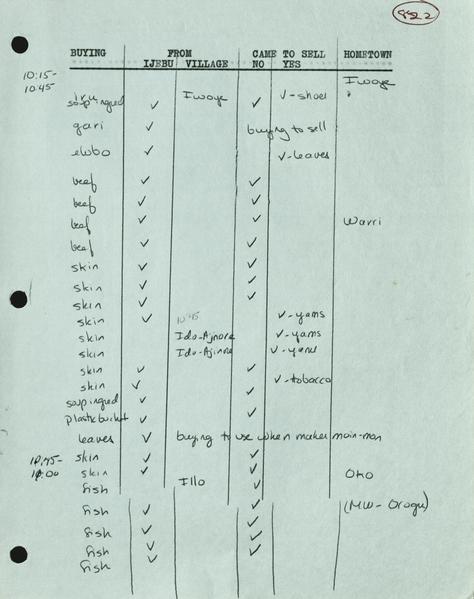 822
BUYING FROM CAME TO SELL HOMETOWN
IJEBU VILLAGE NO YES
10:15- Iwoye
10:45 iru
soup ingred ✓ Iwoye ✓ ✓-shoes "
gari ✓ buying to sell
elubo ✓ ✓-leaves
beef ✓ ✓
beef ✓ ✓
beef ✓ ✓ Warri
beef ✓ ✓
skin ✓ ✓
skin ✓ ✓
skin ✓ ✓
skin ✓ 10:45 ✓-yams
skin Ido-Ajinore ✓-yams
skin Ido-Ajinore ✓-yams
skin ✓ ✓
skin ✓ ✓-tobacco
soup ingred ✓ ✓
plastic bucket ✓ ✓
leaves ✓ buying to use when makes moin-moin
10:45- skin ✓ ✓
11:00 skin ✓ ✓ Oko
fish Illo ✓
fish ✓ ✓ (MW-Orogu)
fish ✓ ✓
fish ✓ ✓
fish ✓ ✓